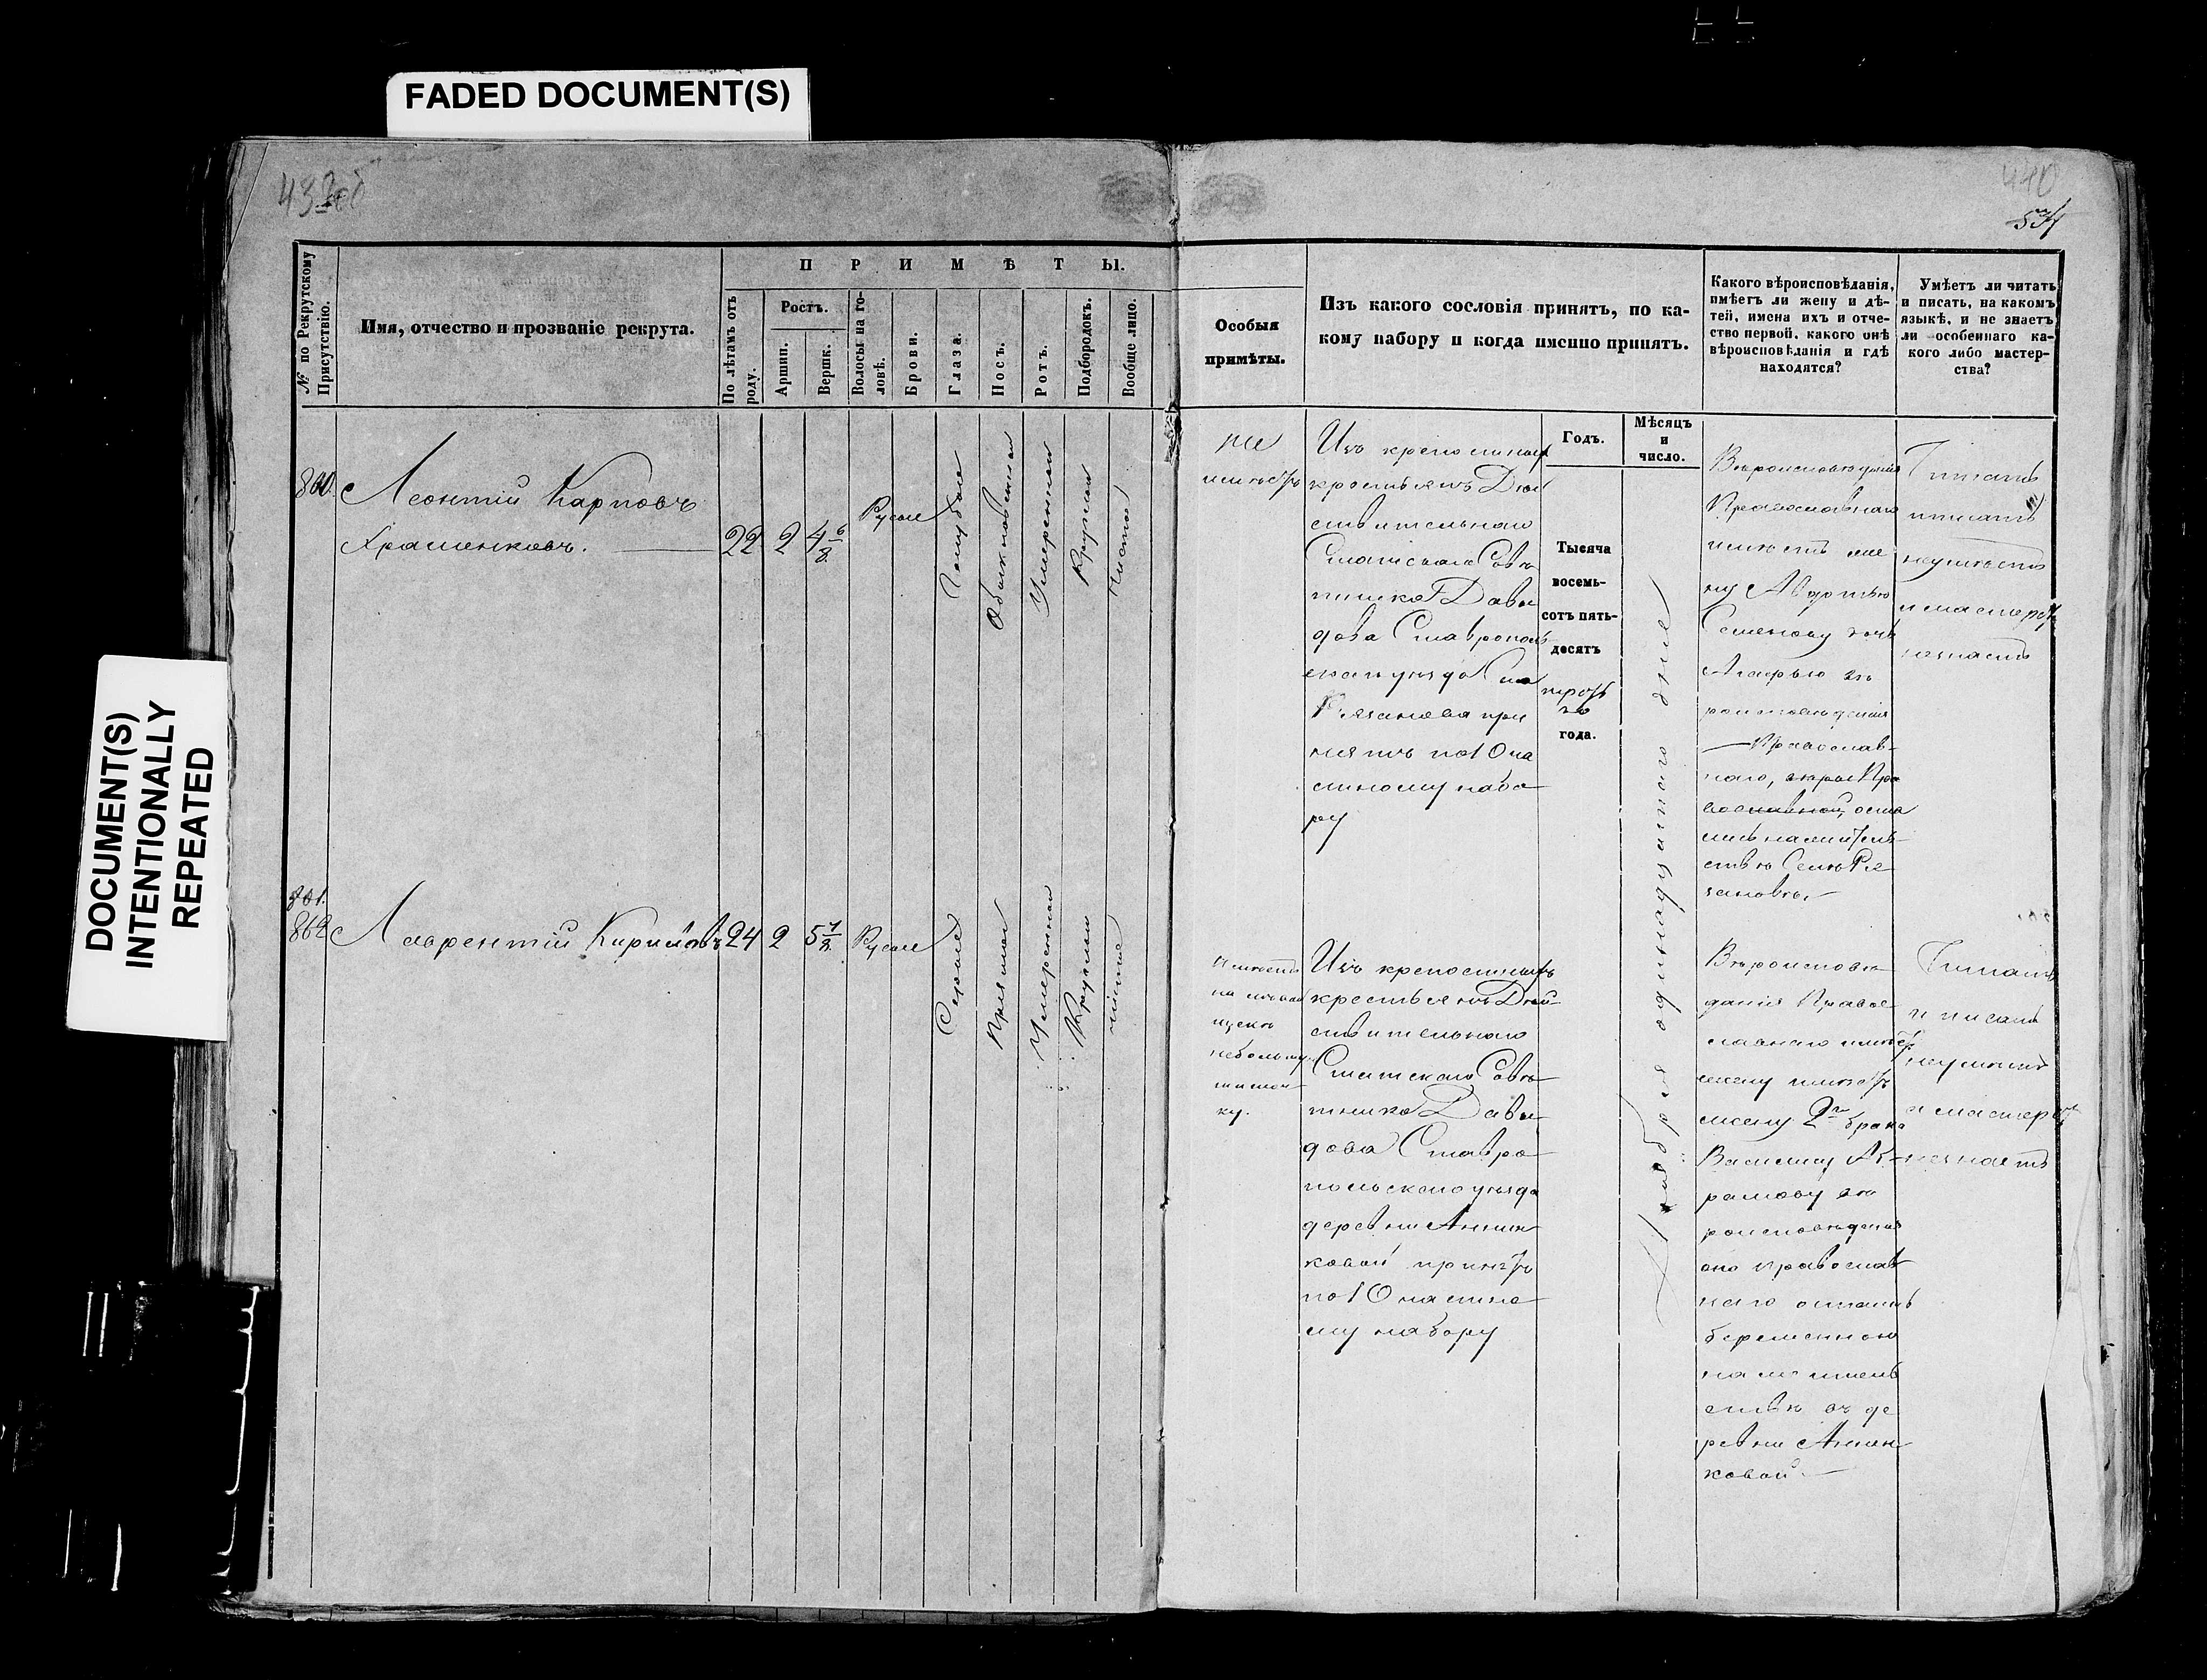 FADED DOCUMENT(S)
DOCUMENT(S)
INTENTIONALLY
REPEATED
440
№ по Рекрутскому
Присутствію.
Имя, отчество и прозваніе рекрута.
ПРИМѢТЫ.
По лѣтамъ отъ
роду.
Ростъ.
Аршин.
Вершк.
Волосы на го-
ловѣ.
Брови.
Глаза.
Носъ.
Ротъ.
Подбородокъ.
Вообще лицо.
Особыя
примѣты.
Изъ какого сословія принятъ, по ка-
кому набору и когда именно принятъ.
Какого вѣроисповѣданія,
имѣетъ ли жену и дѣ-
тей, имена ихъ и отче-
ство первой, какого онѣ
вѣроисповѣданія и гдѣ
находятся?
Умѣетъ ли читать
и писать, на какомъ
языкѣ, и не знаетъ
ли особеннаго ка-
кого либо мастер-
ства?
Годъ.
Мѣсяцъ
и
число.
860.
Леонтій Карповъ
Храменковъ.
22 2 4 6/8
Русые
Голубые
Обыкновенный
Умеренный
Круглый
Чистое
не
имѣетъ
Изъ крепостныхъ
крестьянъ Дѣй
ствительнаго
Статскаго Совѣ
тника Давы
дова Ставрополь
скаго уѣзда Села
Рязанова при
нятъ по 10 ча
стному набо
ру
Тысяча
восемь-
сотъ пять-
десятъ
треть
яго
года.
Ноября одинадцатаго дня
Вѣроисповѣданія
Православнаго
имѣетъ же
ну Авдотью
Семенову дочь
Агафью вѣ
роисповѣданія
Православ-
наго,
Читать
писать
неумѣетъ
и мастерст
незнаетъ
861.
862
Лаврентій Кириловъ 24 2 5 7/8 Русые
Серые
Прямой
Умеренный
Круглый
чистое
Имѣетъ
на
щекѣ
небольшую
Изъ крепостныхъ
крестьянъ Дѣй-
ствительнаго
Статскаго Совѣ-
тника Давы-
дова Ставро-
польскаго уѣзда
деревни Аннен
ковой принятъ
по 10 частно
му набору
Вѣроисповѣ-
данія Правос-
лавнаго имѣетъ
жену имѣетъ
жену 2го брака
Василису Аб-
рамову вѣ
роисповѣданія
она православ
наго осталась
беременною
на жител
ствѣ въ де
ревни Аннен
ковой
Читать
и писать
неумѣетъ
и мастерст
незнаетъ